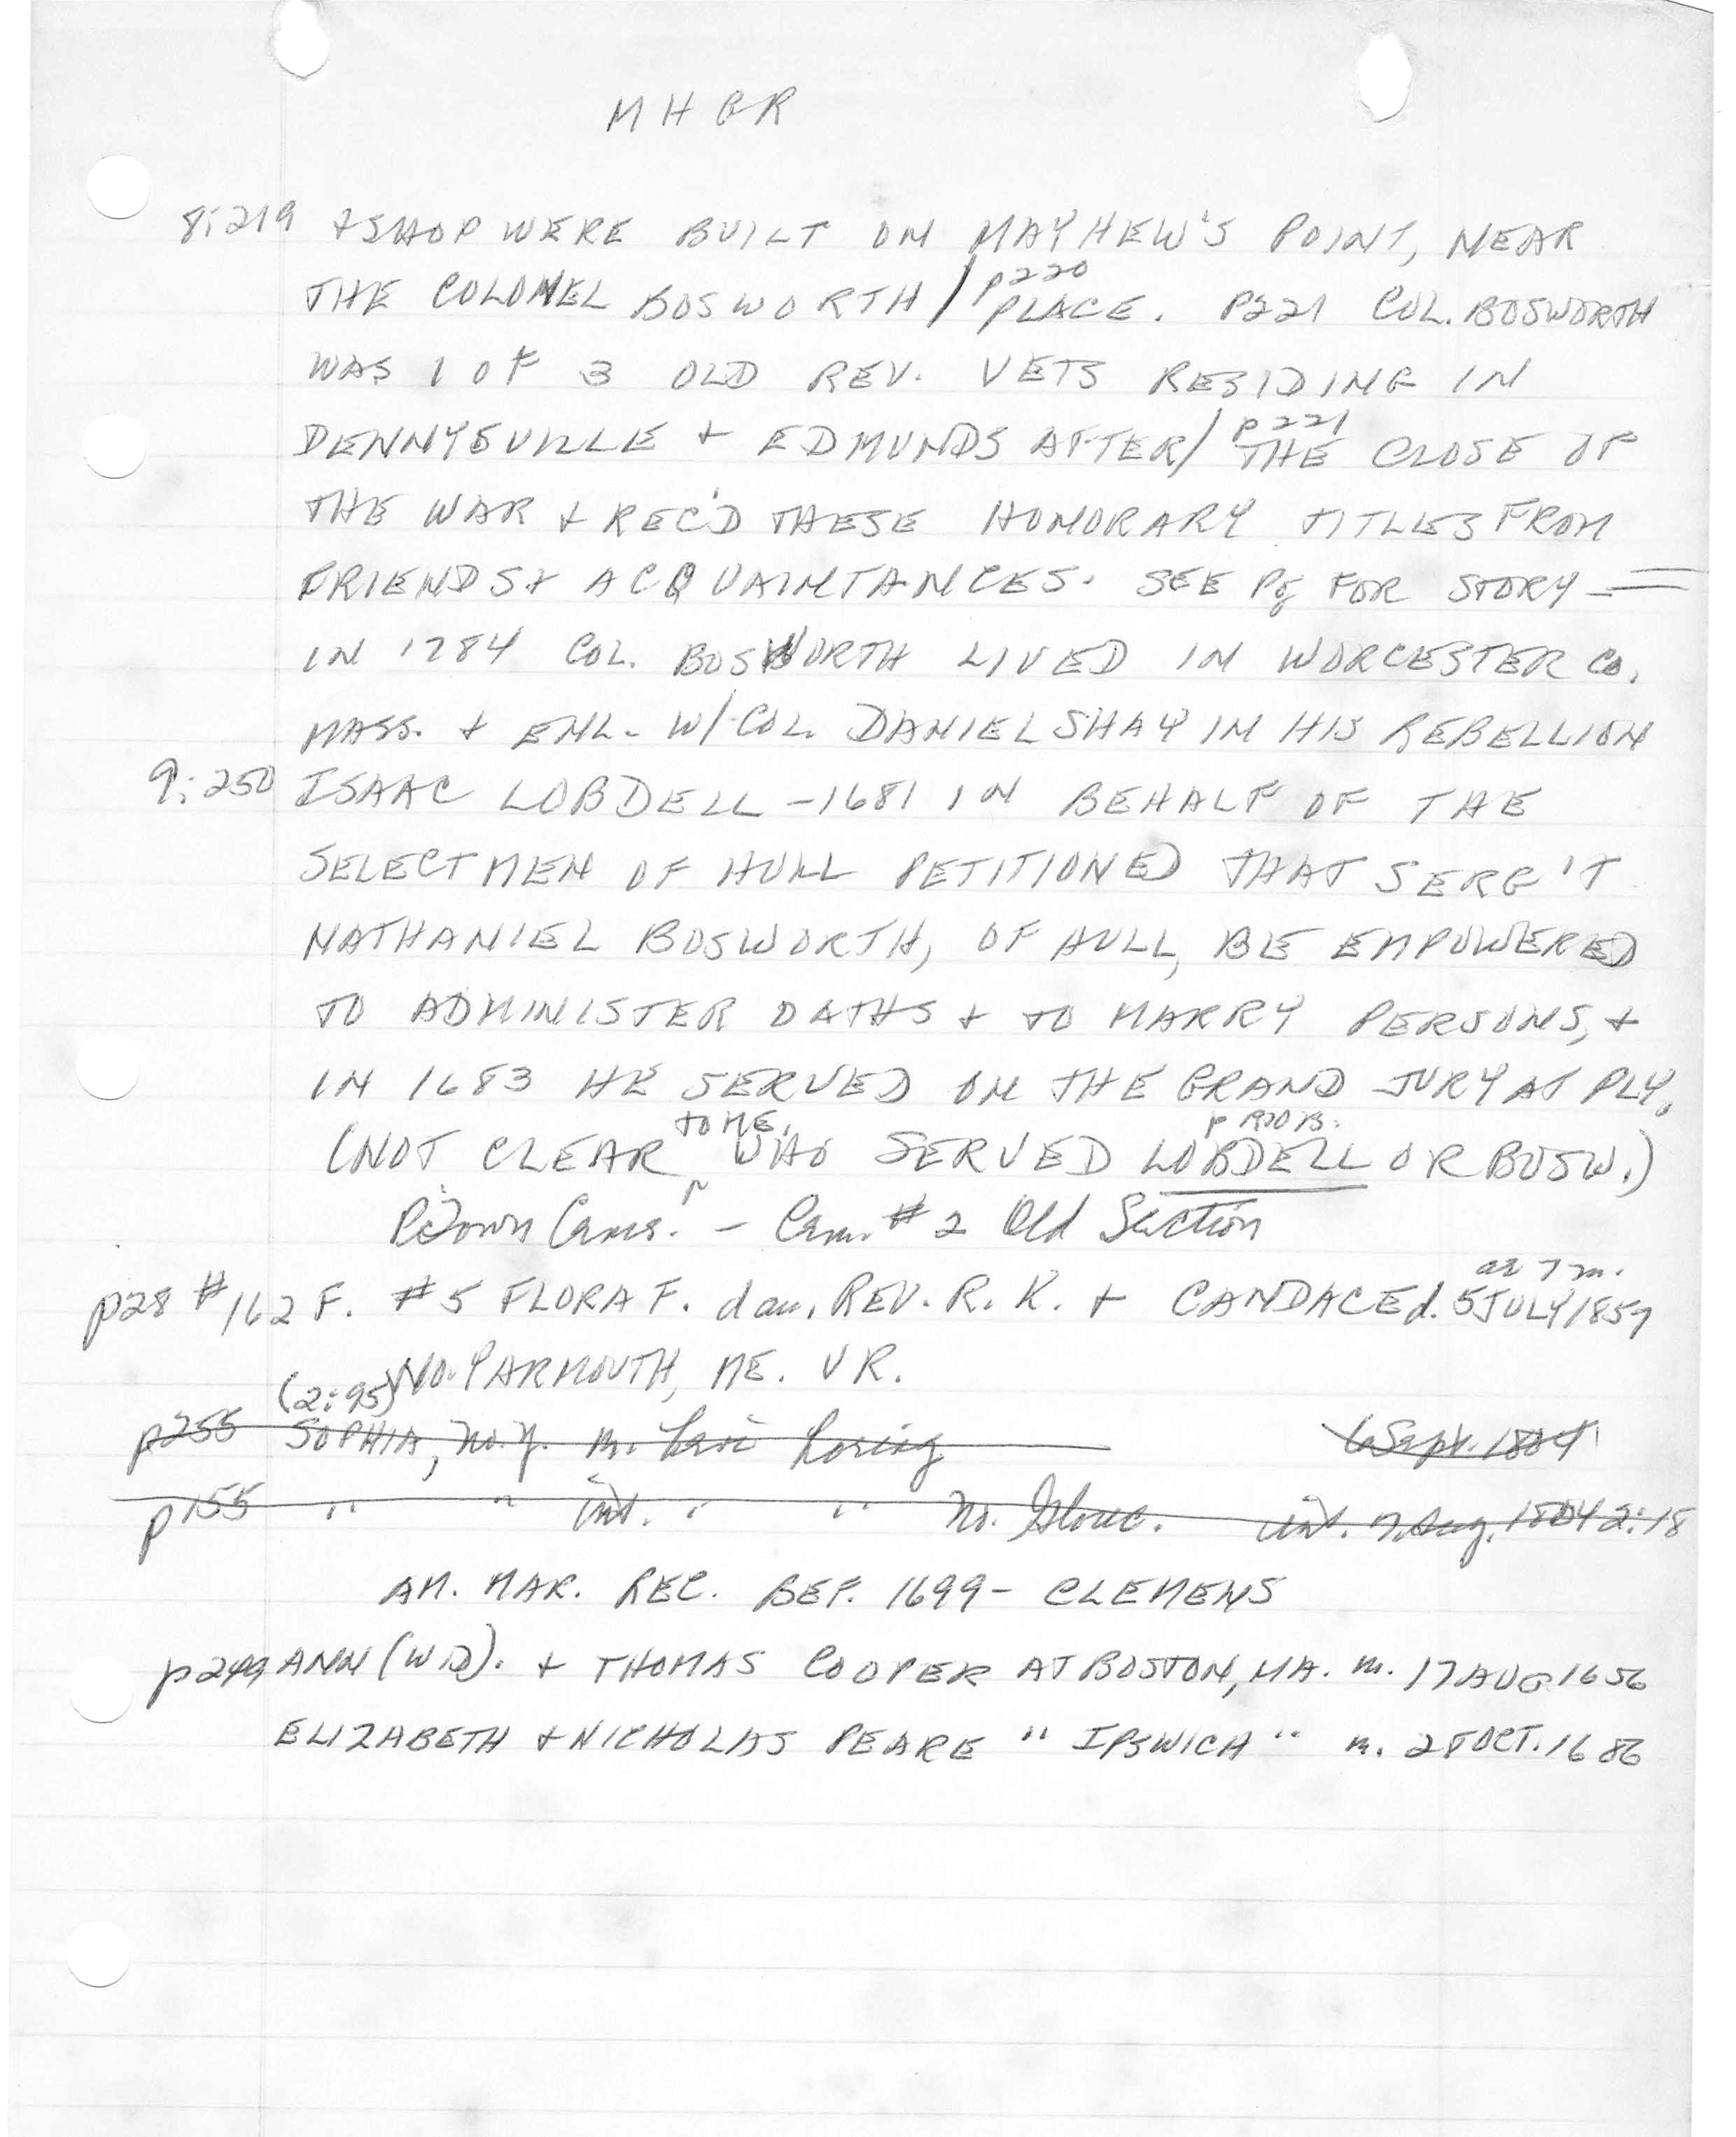 MHGR
8:219 & SHOP WERE BUILT ON MAYHEW'S POINT, NEAR
THE COLONEL BOSWORTH / p220 PLACE. P221 COL. BOSWORTH
WAS 1 OF 3 OLD REV. VETS RESIDING IN
DENNYSVILLE & EDMUNDS AFTER / p221 THE CLOSE OF
THE WAR & REC'D THESE HONORARY TITLES FROM
FRIENDS & ACQUAINTANCES. SEE Pg FOR STORY —
IN 1784 COL. BOSWORTH LIVED IN WORCESTER CO.
MASS. & ENL. W/ COL. DANIEL SHAY IN HIS REBELLION
9:250 ISAAC LOBDELL - 1681 IN BEHALF OF THE
SELECTMEN OF HULL PETITIONED THAT SERG'T
NATHANIEL BOSWORTH, OF HULL, BE EMPOWERED
TO ADMINISTER OATHS & TO MARRY PERSONS, &
IN 1683 HE SERVED ON THE GRAND JURY AT PLY.
(NOT CLEAR TO ME, WHO SERVED p PROB. LOBDELL OR BOSW.)
P:Town Cems. - Cem. #2 Old Section
p28 #162 F. #5 FLORA F. dau. REV. R. K. & CANDACE d. 5 JULY 1857 ae 7 m.
NO. YARMOUTH, ME. VR.
(2:95)
p255 SOPHIA, No. Y. m. Levi Loring 6 Sept. 1804
p155 " " int. " " No. Glouc. int. 7 Aug. 1804 2:18
AM. MAR. REC. BEF. 1699 - CLEMENS
p249 ANN (WID). & THOMAS COOPER AT BOSTON, MA. m. 17 AUG 1656
ELIZABETH & NICHOLAS PEARE " IPSWICH " m. 28 OCT. 1686